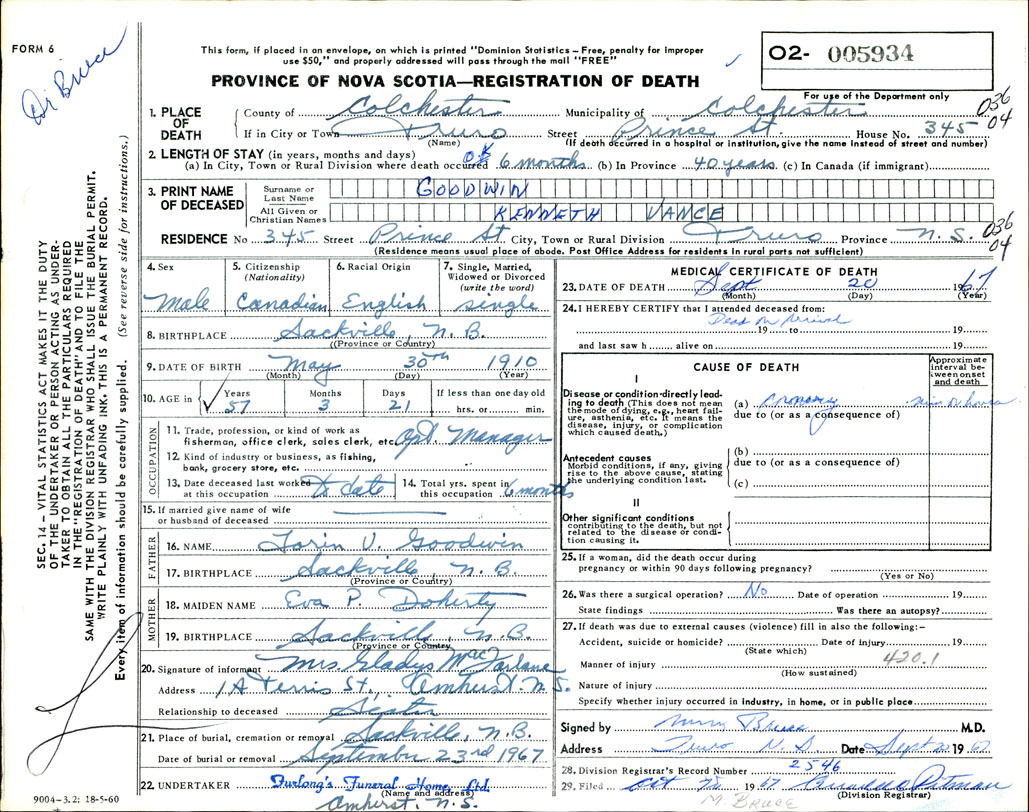 FORM 6
Dr Bruce
This form, if placed in an envelope, on which is printed "Dominion Statistics – Free, penalty for improper
use $50," and properly addressed will pass through the mail "FREE"
02- 005934
For use of the Department only
PROVINCE OF NOVA SCOTIA—REGISTRATION OF DEATH
036
04
1. PLACE OF DEATH
County of Colchester Municipality of Colchester
If in City or Town Truro Street Prince St. House No. 345
(Name) (If death occurred in a hospital or institution, give the name instead of street and number)
2. LENGTH OF STAY (in years, months and days)
(a) In City, Town or Rural Division where death occurred 6 months (b) In Province 40 years (c) In Canada (if immigrant)
3. PRINT NAME OF DECEASED
Surname or Last Name GOODWIN
All Given or Christian Names KENNETH VANCE
RESIDENCE No 345 Street Prince St City, Town or Rural Division Truro Province N.S.
(Residence means usual place of abode. Post Office Address for residents in rural parts not sufficient)
036
04
4. Sex Male
5. Citizenship (Nationality) Canadian
6. Racial Origin English
7. Single, Married, Widowed or Divorced (write the word) single
8. BIRTHPLACE Sackville, N.B.
(Province or Country)
9. DATE OF BIRTH May 30th 1910
(Month) (Day) (Year)
10. AGE in Years 57 Months 3 Days 21 If less than one day old hrs. or min.
OCCUPATION
11. Trade, profession, or kind of work as
fisherman, office clerk, sales clerk, etc. Apt. Manager
12. Kind of industry or business, as fishing,
bank, grocery store, etc.
13. Date deceased last worked at this occupation To date
14. Total yrs. spent in this occupation 6 months
15. If married give name of wife
or husband of deceased
FATHER
16. NAME Lorin V. Goodwin
17. BIRTHPLACE Sackville, N.B.
(Province or Country)
MOTHER
18. MAIDEN NAME Eva P. Doherty
19. BIRTHPLACE Sackville, N.B.
(Province or Country)
20. Signature of informant Mrs. Gladys MacFarlane
Address 1A Terris St., Amherst. N.S.
Relationship to deceased Sister
21. Place of burial, cremation or removal Sackville, N.B.
Date of burial or removal September 23rd 1967
22. UNDERTAKER Furlong's Funeral Home, Ltd.
(Name and address)
Amherst, N.S.
9004-3.2: 18-5-60
MEDICAL CERTIFICATE OF DEATH
23. DATE OF DEATH Sept 20 1967
(Month) (Day) (Year)
24. I HEREBY CERTIFY that I attended deceased from:
Dead on arrival
19 to 19
and last saw h alive on 19
CAUSE OF DEATH
Approximate interval between onset and death
I
Disease or condition directly leading to death (This does not mean the mode of dying, e.g., heart failure, asthenia, etc. It means the disease, injury, or complication which caused death.)
(a) Coronary min or hours
due to (or as a consequence of)
Antecedent causes
Morbid conditions, if any, giving rise to the above cause, stating the underlying condition last.
(b)
due to (or as a consequence of)
(c)
II
Other significant conditions
contributing to the death, but not related to the disease or condition causing it.
25. If a woman, did the death occur during
pregnancy or within 90 days following pregnancy?
(Yes or No)
26. Was there a surgical operation? No Date of operation 19
State findings Was there an autopsy?
27. If death was due to external causes (violence) fill in also the following:–
Accident, suicide or homicide? Date of injury 19
(State which)
420.1
Manner of injury
(How sustained)
Nature of injury
Specify whether injury occurred in industry, in home, or in public place
Signed by Bruce M.D.
Address Truro N.S. Date Sept 20 1967
28. Division Registrar's Record Number 2546
29. Filed Oct 1967
(Division Registrar)
M. BRUCE
SEC. 14 – VITAL STATISTICS ACT MAKES IT THE DUTY
OF THE UNDERTAKER OR PERSON ACTING AS UNDER-
TAKER TO OBTAIN ALL THE PARTICULARS REQUIRED
IN THE "REGISTRATION OF DEATH" AND TO FILE THE
SAME WITH THE DIVISION REGISTRAR WHO SHALL ISSUE THE BURIAL PERMIT.
WRITE PLAINLY WITH UNFADING INK. THIS IS A PERMANENT RECORD.
Every item of information should be carefully supplied. (See reverse side for instructions.)